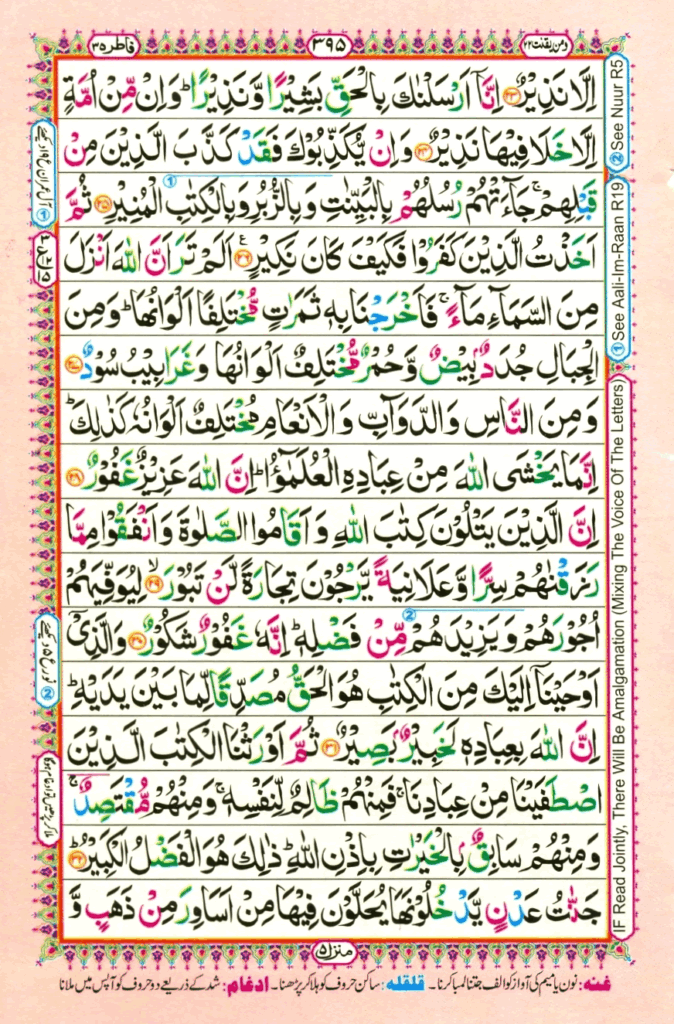 فاطر ۳۵
۳۹۵
ومن یقنت ۲۲
اِلَّا نَذِيْرٌ ﴿۲۳﴾ اِنَّاۤ اَرْسَلْنٰكَ بِالْحَقِّ بَشِيْرًا وَّنَذِيْرًا ؕ وَاِنْ مِّنْ اُمَّةٍ
اِلَّا خَلَا فِيْهَا نَذِيْرٌ ﴿۲۴﴾ وَاِنْ يُّكَذِّبُوْكَ فَقَدْ كَذَّبَ الَّذِيْنَ مِنْ
قَبْلِهِمْ ۚ جَآءَتْهُمْ رُسُلُهُمْ بِالْبَيِّنٰتِ وَبِالزُّبُرِ وَبِالْكِتٰبِ الْمُنِيْرِ ﴿۲۵﴾ ثُمَّ
اَخَذْتُ الَّذِيْنَ كَفَرُوْا فَكَيْفَ كَانَ نَكِيْرِ ﴿۲۶﴾ ع اَلَمْ تَرَ اَنَّ اللّٰهَ اَنْزَلَ
مِنَ السَّمَآءِ مَآءً ۚ فَاَخْرَجْنَا بِهٖ ثَمَرٰتٍ مُّخْتَلِفًا اَلْوَانُهَا ؕ وَمِنَ
الْجِبَالِ جُدَدٌۢ بِيْضٌ وَّحُمْرٌ مُّخْتَلِفٌ اَلْوَانُهَا وَغَرَابِيْبُ سُوْدٌ ﴿۲۷﴾
وَمِنَ النَّاسِ وَالدَّوَآبِّ وَالْاَنْعَامِ مُخْتَلِفٌ اَلْوَانُهٗ كَذٰلِكَ ؕ
اِنَّمَا يَخْشَى اللّٰهَ مِنْ عِبَادِهِ الْعُلَمٰٓؤُا ؕ اِنَّ اللّٰهَ عَزِيْزٌ غَفُوْرٌ ﴿۲۸﴾
اِنَّ الَّذِيْنَ يَتْلُوْنَ كِتٰبَ اللّٰهِ وَاَقَامُوا الصَّلٰوةَ وَاَنْفَقُوْا مِمَّا
رَزَقْنٰهُمْ سِرًّا وَّعَلَانِيَةً يَّرْجُوْنَ تِجَارَةً لَّنْ تَبُوْرَ ﴿۲۹﴾ ۙ لِيُوَفِّيَهُمْ
اُجُوْرَهُمْ وَيَزِيْدَهُمْ مِّنْ فَضْلِهٖ ؕ اِنَّهٗ غَفُوْرٌ شَكُوْرٌ ﴿۳۰﴾ وَالَّذِيْۤ
اَوْحَيْنَاۤ اِلَيْكَ مِنَ الْكِتٰبِ هُوَ الْحَقُّ مُصَدِّقًا لِّمَا بَيْنَ يَدَيْهِ ؕ
اِنَّ اللّٰهَ بِعِبَادِهٖ لَخَبِيْرٌۢ بَصِيْرٌ ﴿۳۱﴾ ثُمَّ اَوْرَثْنَا الْكِتٰبَ الَّذِيْنَ
اصْطَفَيْنَا مِنْ عِبَادِنَا ۚ فَمِنْهُمْ ظَالِمٌ لِّنَفْسِهٖ ۚ وَمِنْهُمْ مُّقْتَصِدٌ ۚ
وَمِنْهُمْ سَابِقٌۢ بِالْخَيْرٰتِ بِاِذْنِ اللّٰهِ ؕ ذٰلِكَ هُوَ الْفَضْلُ الْكَبِيْرُ ﴿۳۲﴾ ؕ
جَنّٰتُ عَدْنٍ يَّدْخُلُوْنَهَا يُحَلَّوْنَ فِيْهَا مِنْ اَسَاوِرَ مِنْ ذَهَبٍ وَّ
② See Nuur R5
① See Aali-Im-Raan R19
IF Read Jointly, There Will Be Amalgamation (Mixing The Voice Of The Letters)
① آل عمران ع ۱۹ دیکھئے
② نور ع ۵ دیکھئے
ملا کر پڑھیں تو ادغام ہوگا
منزل ۵
غنه: نون یا میم کی آواز کو الف جتنا لمبا کرنا۔ قلقله: ساکن حروف کو ہلا کر پڑھنا۔ ادغام: شد کے ذریعے دو حروف کو آپس میں ملانا